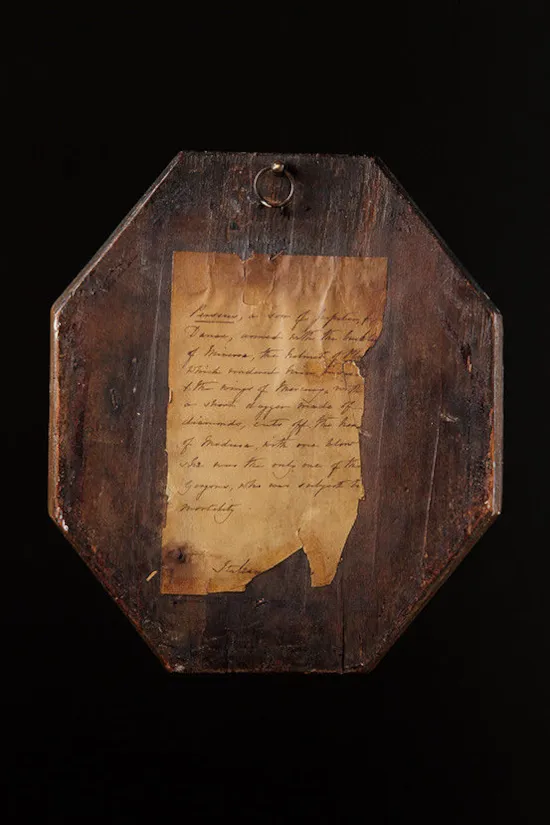 Perseus, a son of Jupiter, &
Danae, armed with the buckler
of Minerva, the helmet of Pluto
which rendered him
& the wings of Mercury, with
a short dagger made of
diamonds, cuts off the head
of Medusa, with one blow
She was the only one of the
Gorgons, who was subject to
mortality
Italian